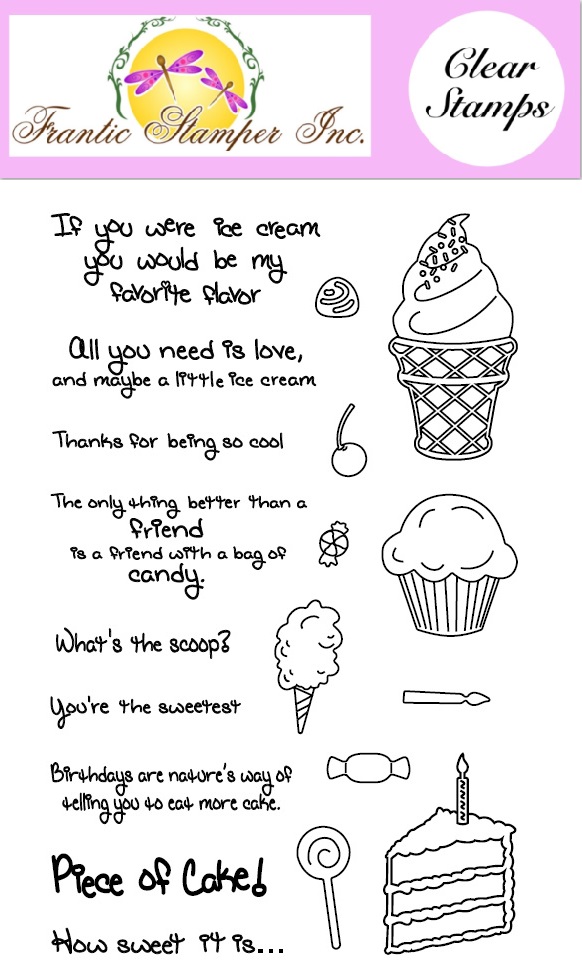 Frantic Stamper Inc.
Clear
Stamps
If you were ice cream
you would be my
favorite flavor
All you need is love,
and maybe a little ice cream
Thanks for being so cool
The only thing better than a
friend
is a friend with a bag of
candy.
What's the scoop?
You're the sweetest
Birthdays are nature's way of
telling you to eat more cake.
Piece of Cake!
How sweet it is...